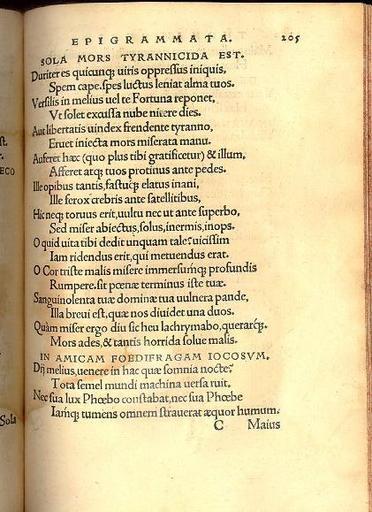 EPIGRAMMATA. 205
SOLA MORS TYRANNICIDA EST.
Duriter es quicunq; uiris oppressus iniquis,
Spem cape. spes luctus leniat alma tuos.
Versilis in melius uel te Fortuna reponet,
Vt solet excussa nube nitere dies.
Aut libertatis uindex frendente tyranno,
Eruet iniecta mors miserata manu.
Auferet hæc (quo plus tibi gratificetur) & illum,
Afferet atq; tuos protinus ante pedes.
Ille opibus tantis, fastuq; elatus inani,
Ille ferox crebris ante satellitibus,
Hic neq; toruus erit, uultu nec ut ante superbo,
Sed miser abiectus, solus, inermis, inops.
O quid uita tibi dedit unquam tale? uicissim
Iam ridendus erit, qui metuendus erat.
O Cor triste malis misere immersumq; profundis
Rumpere. sit pœnæ terminus iste tuæ.
Sanguinolenta tuæ dominæ tua uulnera pande,
Illa breui est, quæ nos diuidet una duos.
Quàm miser ergo diu sic heu lachrymabo, querarq;.
Mors ades, & tantis horrida solue malis.
IN AMICAM FOEDIFRAGAM IOCOSVM.
Dij melius, uenere in hac quæ somnia nocte?
Tota semel mundi machina uersa ruit.
Nec sua lux Phœbo constabat, nec sua Phœbe
Iamq; tumens omnem strauerat æquor humum.
C Maius
st.
ECO
Sola